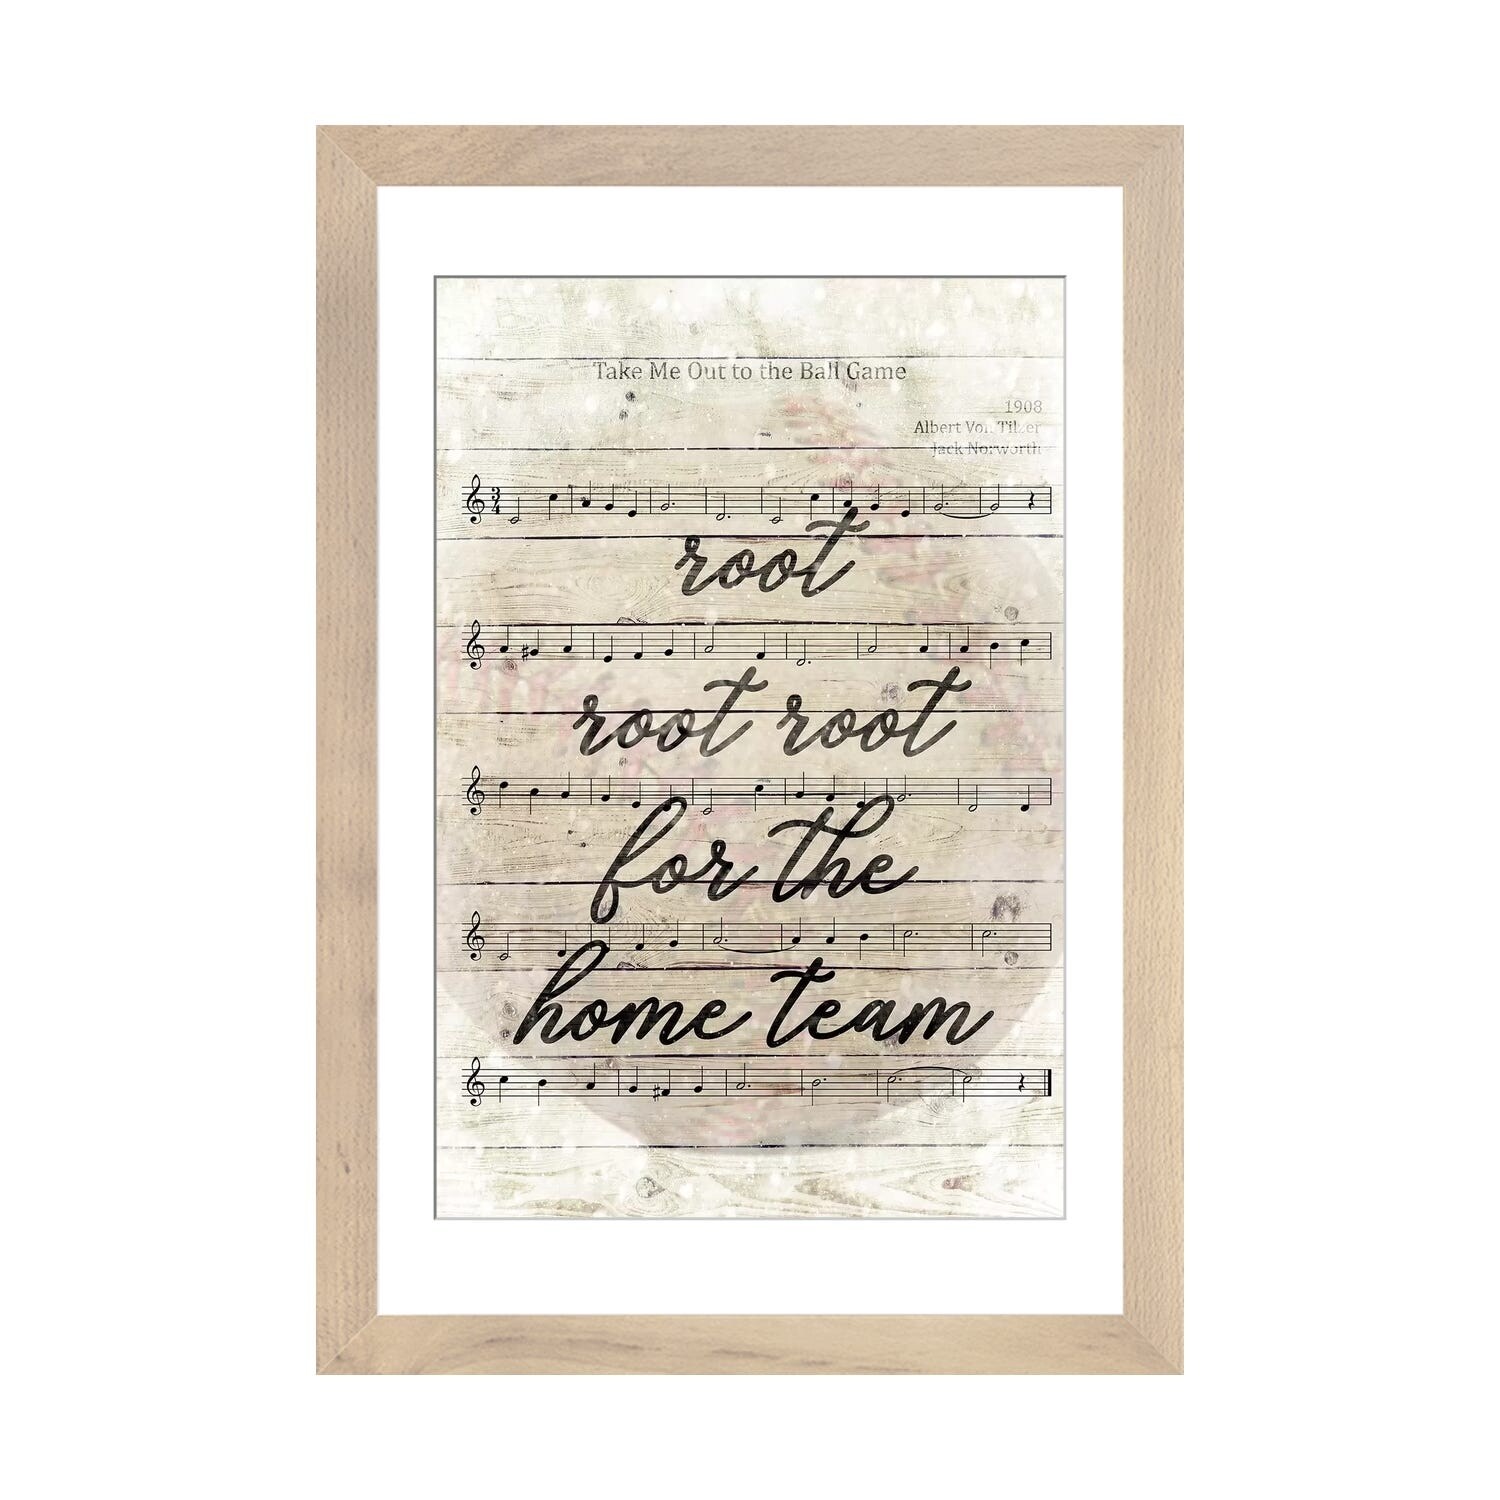 Take Me Out to the Ball Game
1908
Albert Von Tilzer
Jack Norworth
3
4
root
root root
for the
home team